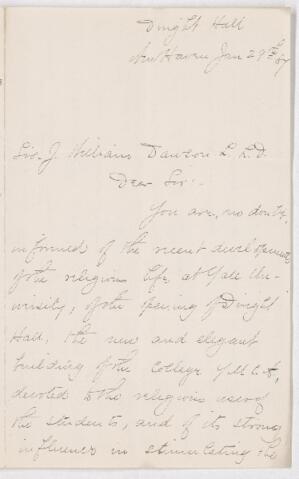 Dwight Hall
New Haven Jan 29th 87
Sir J. William Dawson L.L.D.
Dear Sir:-
You are, no doubt,
informed of the recent development
of the religious life at Yale Uni-
versity, of the opening of Dwight
Hall, the new and elegant
building of the College Y.M.C.A,
devoted to the religious uses of
the students, and of its strong
influence in stimulating the